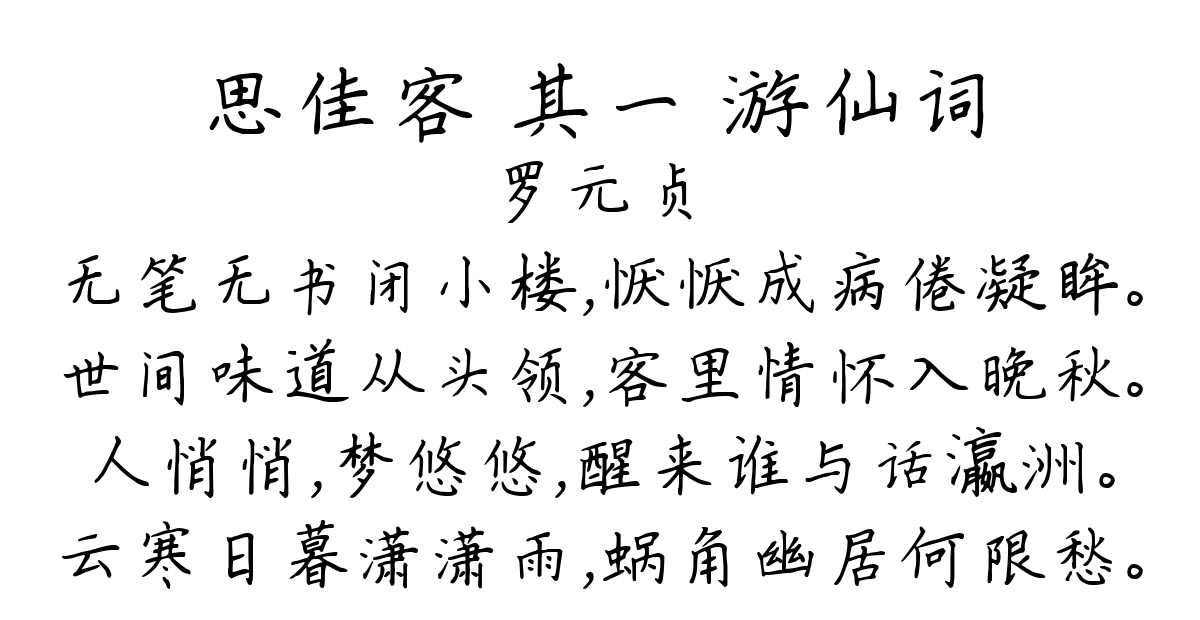 思佳客 其一 游仙词
罗元贞
无笔无书闭小楼,恹恹成病倦凝眸。
世间味道从头领,客里情怀入晚秋。
人悄悄,梦悠悠,醒来谁与话瀛洲。
云寒日暮潇潇雨,蜗角幽居何限愁。